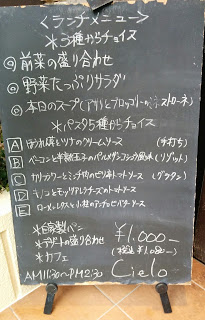 <ランチメニュー>
*3種からチョイス
◎前菜の盛り合わせ
◎野菜たっぷりサラダ
◎本日のスープ(アサリとブロッコリーのミネストローネ)
*パスタ5種からチョイス
A ほうれん草とツナのクリームソース (手打ち)
B ベーコンと半熟玉子のパルメザンコンソメ風味 (リゾット)
C カリフラワーとミンチ肉のピリ辛トマトソース (グラタン)
D キノコとモッツァレラチーズのトマトソース
E ローメンレタスと小柱のアンチョビバターソース
*自家製パン
*デザートの盛り合わせ
*カフェ
¥1.000-
(税込¥1.080-)
AM11:30~PM2:30 Cielo